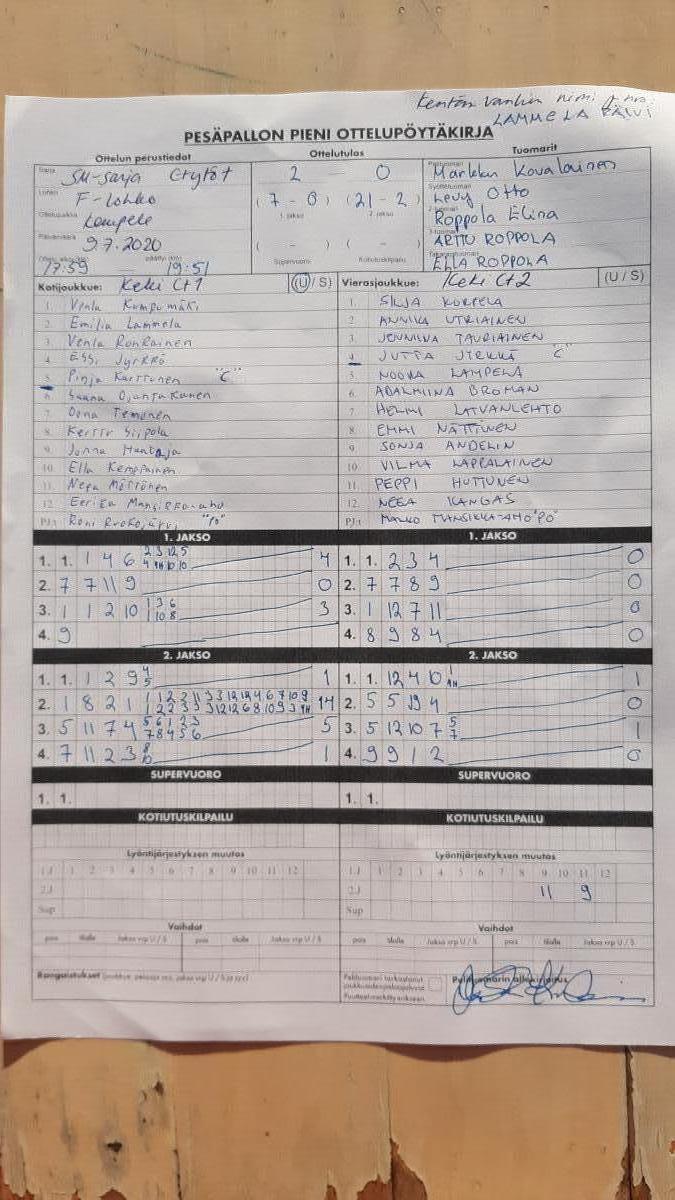 Kentän vanhin nimi
LAMMELA PÄIVI
PESÄPALLON PIENI OTTELUPÖYTÄKIRJA
Ottelun perustiedot
Sarja SM-sarja Ctytöt
Lohko F-Lohko
Ottelupaikka Kempele
Päivämäärä 9.7.2020
17:59 19:51
Ottelutulos
2 0
(7 - 0) (21 - 2)
1. jakso 2. jakso
( - ) ( - )
Supervuoro Kotiutuskilpailu
Tuomarit
Markku Kovalainen
Levy Otto
Roppola Elina
ARTTU ROPPOLA
ELLA ROPPOLA
Kotijoukkue: KeKi Ct1 (U / S)
1. Venla Kumpumäki
2. Emilia Lammela
3. Venla Ronkainen
4. Essi Jyrkkö
5. Pinja Karttunen "C"
6. Saana
7. Oona Temonen
8. Kerttu Siipola
9. Jonna Hantaja
10. Ella Kemppainen
11. Neea Möttönen
12. Eerika
PJ:t Roni "PJ"
Vierasjoukkue: KeKi Ct2 (U / S)
1. SILJA KORPELA
2. ANNIKA UTRIAINEN
3. JENNIINA TAURIAINEN
4. JUTTA JYRKKÄ "C"
5. NOORA LAMPELA
6. ADALMIINA BROMAN
7. HELMI LATVANLEHTO
8. EMMI NÄTTINEN
9. SONJA ANDELIN
10. VILMA LAPPALAINEN
11. PEPPI HUTTUNEN
12. NEEA KANGAS
PJ:t MARKO
1. JAKSO
1. 1. 1 4 6 2 3 12 5 4
4 AH 10 10
2. 7 7 11 9 0
3. 1 1 2 10 1 3 6 3
1 10 8
4. 9
1. JAKSO
1. 1. 2 3 4 0
2. 7 7 8 9 0
3. 1 12 7 11 0
4. 8 9 8 4 0
2. JAKSO
1. 1. 1 2 9 4 1
5
2. 1 8 2 1 1 1 2 2 11 3 3 12 12 4 6 7 10 9 14
3. 5 11 7 4 5 6 1 2 3 5
7 8 4 5 6
4. 7 11 2 3 8 1
2. JAKSO
1. 1. 12 4 10 1 1
AH
2. 5 5 4 0
3. 5 12 10 7 5 1
7
4. 9 9 1 2 0
SUPERVUORO
1. 1.
SUPERVUORO
1. 1.
KOTIUTUSKILPAILU
KOTIUTUSKILPAILU
Lyöntijärjestyksen muutos
1J 1 2 3 4 5 6 7 8 9 10 11 12
2J
Sup
Lyöntijärjestyksen muutos
1J 1 2 3 4 5 6 7 8 9 10 11 12
2J 11 9
Sup
Vaihdot
pois tilalle Jakso vrp U / S pois tilalle Jakso vrp U / S
Vaihdot
pois tilalle Jakso vrp U / S pois tilalle Jakso vrp U / S
Rangaistukset
Pelituomari tarkastanut
Pelituomarin allekirjoitus